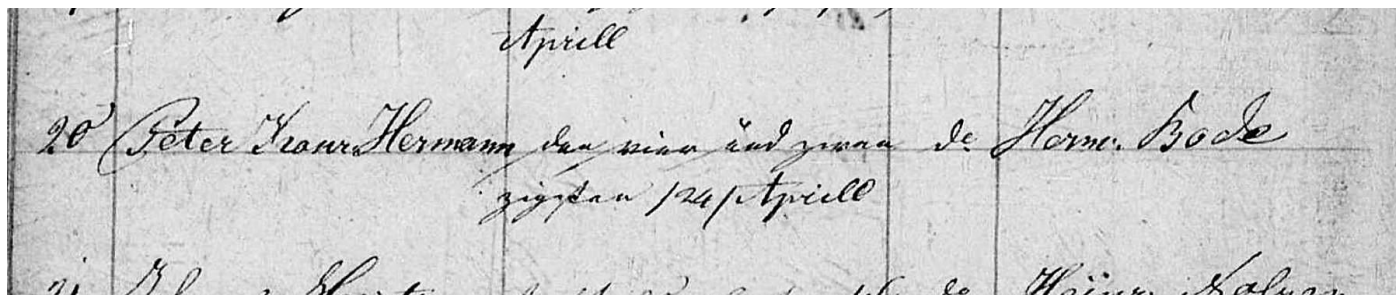 Aprill
20 Peter Franz Hermann den vier und zwan de Herm. Bode
zigsten /24/ Aprill
21 de Heinr.